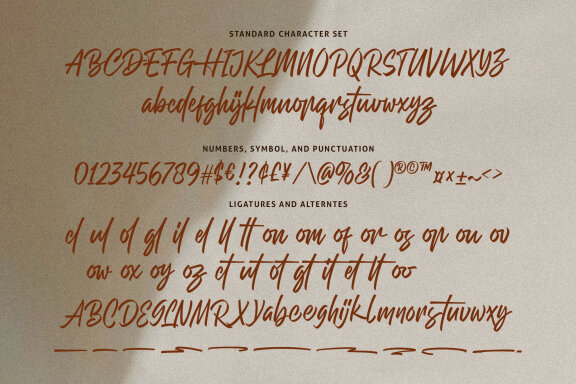 STANDARD CHARACTER SET
ABCDEFGHIJKLMNOPQRSTUVWXYZ
abcdefghijklmnopqrstuvwxyz
NUMBERS, SYMBOL, AND PUNCTUATION
0123456789#$€!?¢£¥/\@%&( )®©™¤×±~<>
LIGATURES AND ALTERNTES
cl ul ol gl il el ll tt on om of or os op ou ov
ow ox oy oz ct ut ot gt it et lt oo
ABCDEGLNMRXYabceghijkLmnorstuvwxy